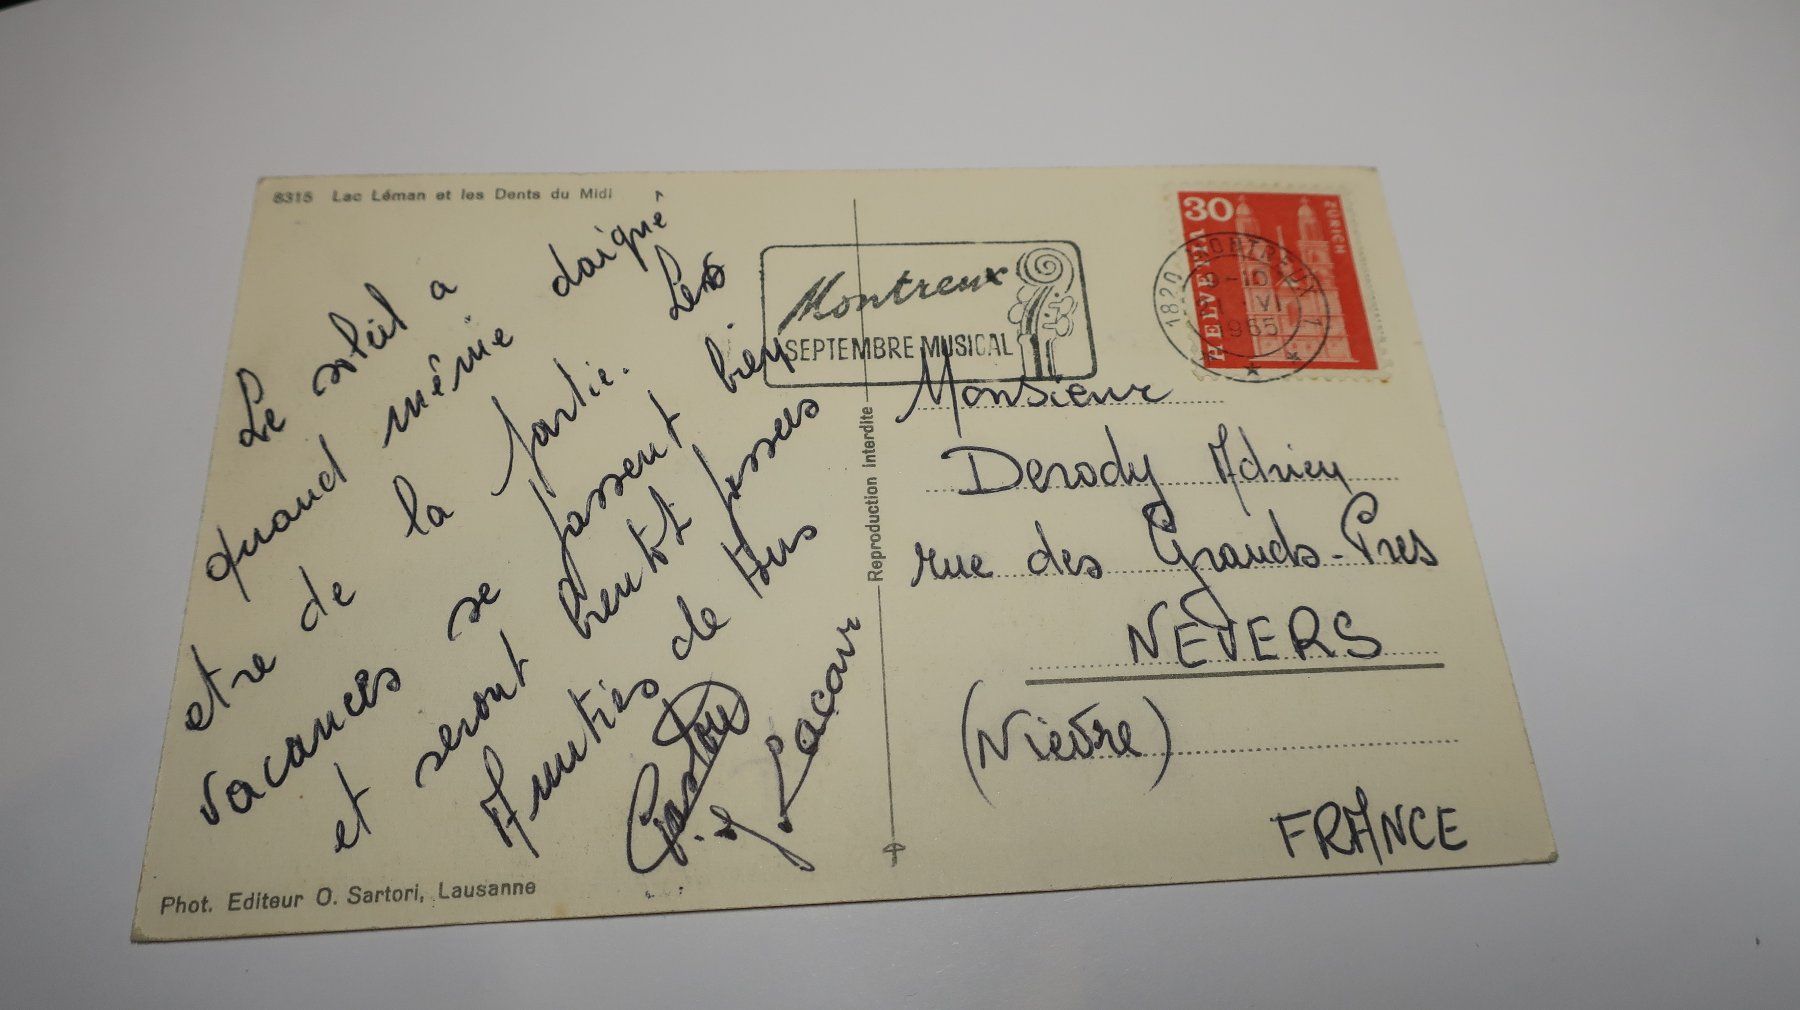 8315 Lac Léman et les Dents du Midi
Le soleil a
quand même daigné
etre de la partie. Les
vacances se passent bien
et seront bientôt passées
Amitiés de tous
Lacour
Phot. Editeur O. Sartori, Lausanne
Reproduction interdite
Montreux
SEPTEMBRE MUSICAL
30
HELVETIA
ZÜRICH
1820 MONTREUX 1
-10
VI
1965
Monsieur
Derody Adrien
rue des Grands-Prés
NEVERS
(Nièvre)
FRANCE